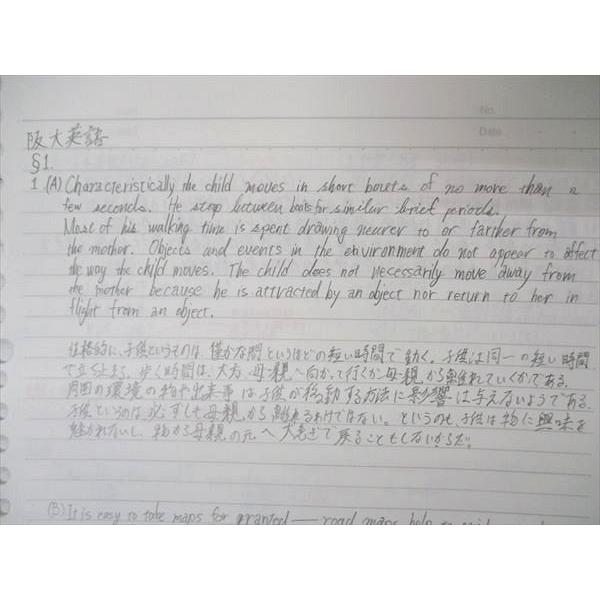 No.
Date
阪大英語
§1.
1 (A) Characteristically the child moves in short bouts of no more than a
few seconds. He stop between boats for similar brief periods.
Most of his walking time is spent drawing nearer to or farther from
the mother. Objects and events in the environment do not appear to affect
the way the child moves. The child does not necessarily move away from
the mother because he is attracted by an object nor return to her in
flight from an object.
性格的に、子供というものは、僅かな間というほどの短い時間で動く。子供は同一の短い時間
で立ち止まる。歩く時間は、大方、母親へ向かって行くか母親から離れていくかである。
周囲の環境の物や出来事は子供が移動する方法に影響は与えないようである。
子供というのは必ずしも母親から離れるわけではない。というのも、子供は物に興味を
惹かれないし、物から母親の元へ大急ぎで戻ることもしないからだ。
(B) It is easy to take maps for granted — road maps help